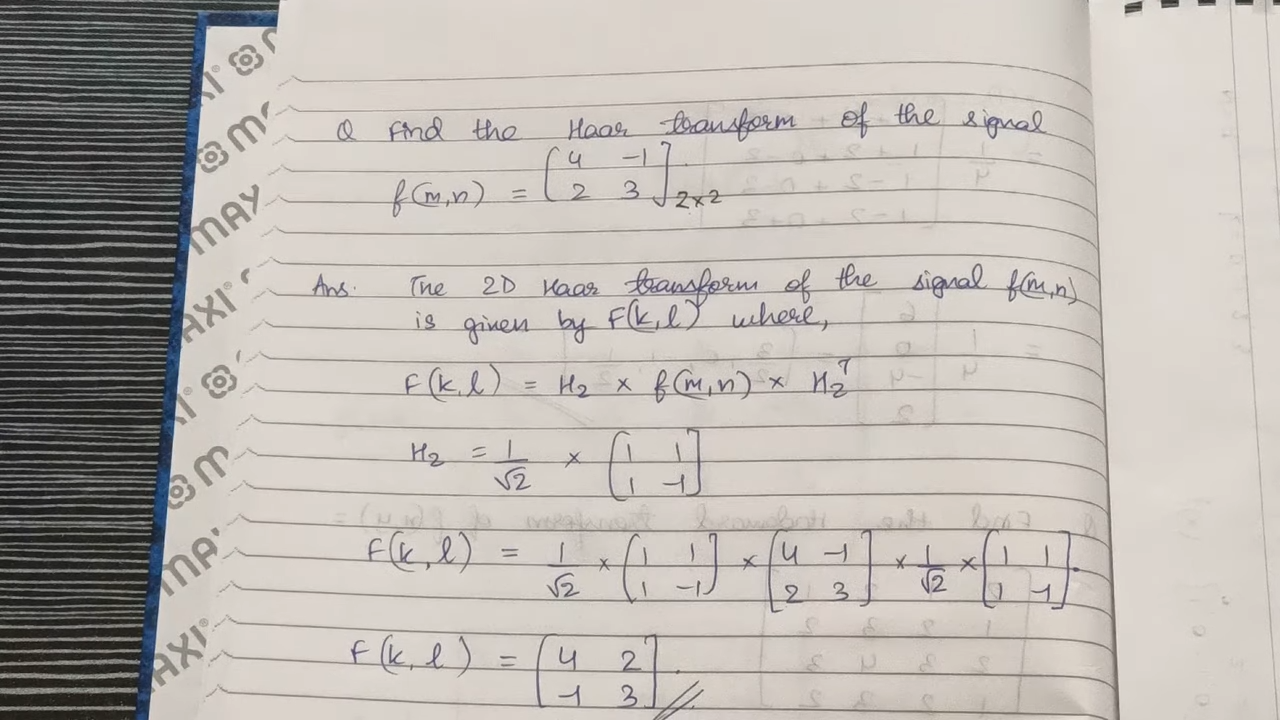 Q Find the Haar transform of the signal
f(m,n) = [4 -1
2 3]2×2
Ans. The 2D Haar transform of the signal f(m,n)
is given by F(k,l) where,
F(k,l) = H2 × f(m,n) × H2^T
H2 = 1/√2 × [1 1
1 -1]
F(k,l) = 1/√2 × [1 1 × [4 -1 × 1/√2 × [1 1
1 -1] 2 3] 1 -1].
F(k,l) = [4 2
-1 3].
MAXI
MAXI
MAXI
MAXI